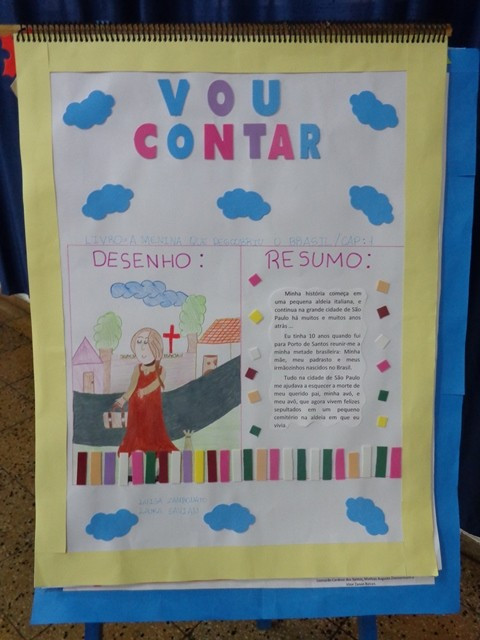 VOU
CONTAR
LIVRO: A MENINA QUE DESCOBRIU O BRASIL / CAP: 1
DESENHO:
RESUMO:
Minha história começa em
uma pequena aldeia italiana, e
continua na grande cidade de São
Paulo há muitos e muitos anos
atrás ...
Eu tinha 10 anos quando fui
para Porto de Santos reunir-me a
minha metade brasileira: Minha
mãe, meu padrasto e meus
irmãozinhos nascidos no Brasil.
Tudo na cidade de São Paulo
me ajudava a esquecer a morte de
meu querido pai, minha avó, e
meu avô, que agora vivem felizes
sepultados em um pequeno
cemitério na aldeia em que eu
vivia.